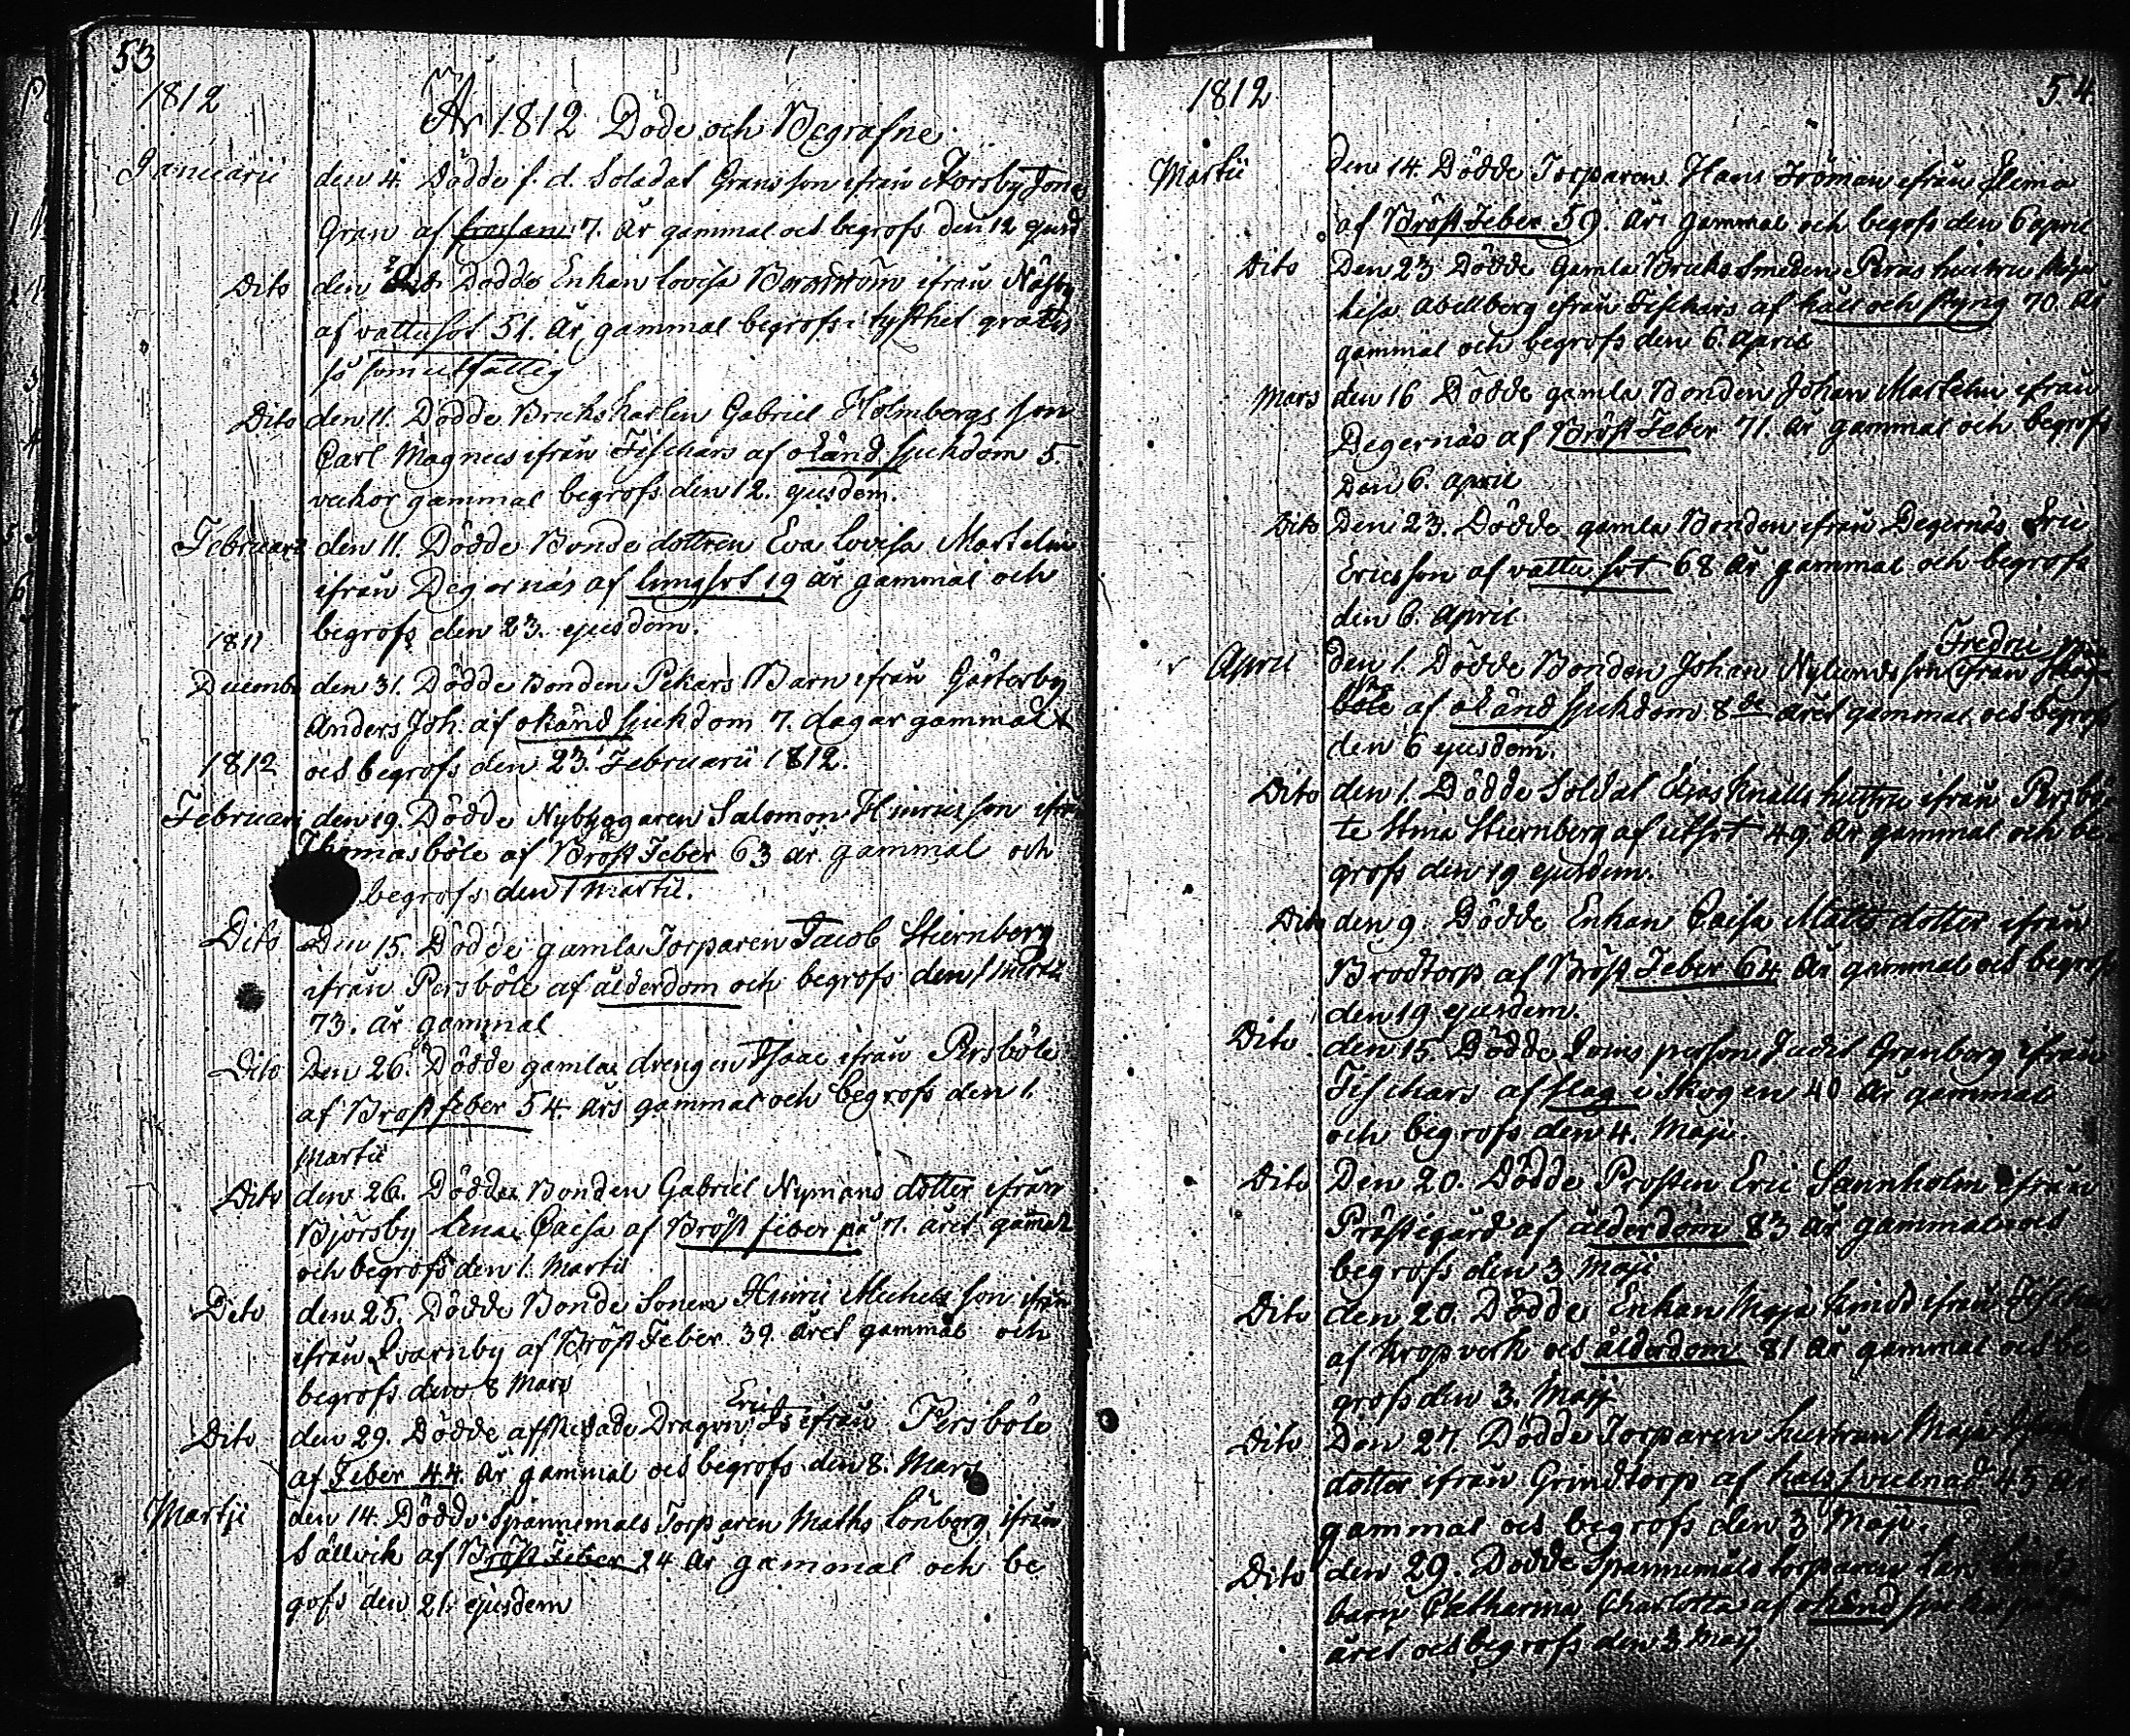 53
1812
År 1812 Döde och Begrafne
Januarii den 4. Dödde f. d. Soladat Grans son ifrån Norsby Jonas
Gran af frossan 7. år gammal och begrofs den 12 ejusd
Dito den Dödde Enkan Lovisa ifrån Näsby
af vattusot 51. år gammal begrofs i tysthet gratis
så som utfattig
Dito den 11. Dödde Brukskarlen Gabriel Holmbergs son
Carl Magnus ifrån Fischars af okänd sjuchdom 5.
veckor gammal begrofs den 12. ejusdem.
Februarii den 11. Dödde Bonde dottren Eva Lovisa Martelin
ifrån Degernäs af lungsot 19 år gammal och
begrofs den 23. ejusdem.
1811
Decemb. den 31. Dödde Bonden Pekars Barn ifrån Gästerby
Anders Joh. af okänd sjuchdom 7. dagar gammalt
1812 och begrofs den 23. Februarii 1812.
Februarii den 19. Dödde Nybyggaren Salomon Hinricsson ifrån
Thomasböle af Bröst Feber 63 år gammal och
begrofs den 1 Martii.
Dito Den 15. Dödde gamla Torparen Jacob Stiernberg
ifrån Persböle af ålderdom och begrofs den 1 Martii
73. år gammal
Dito Den 26. Dödde gamla drengen Isaac ifrån Persböle
af Bröstfeber 54. års gammal och begrofs den 1.
Martii
Dito den 26. Dödde Bonden Gabriel Nymans dotter ifrån
Björsby Lena Caisa af Bröst feber på 7. året gammal
och begrofs den 1. Martii
Dito den 25. Dödde Bonde Sonen Hinric Michels son ifrån
ifrån Qvarnby af Bröst Feber 39. året gammal och
begrofs den 8 Mars
Eric
Dito den 29. Dödde affskedade Dragon ifrån Persböle
af Feber 44. år gammal och begrofs den 8. Mars
Martii den 14. Dödde Spannemåls Torparen Maths Lönberg ifrån
Sällvik af Bröst Feber 24 år gammal och be
gofs den 21. ejusdem
1812
54
Martii Den 14. Dödde Torparen Hans Fröman ifrån Elimo
af Bröst Feber 59. års gammal och begofs den 6 april
Dito Den 23 Dödde Gamla Bruks Smeden Peras hustru Maja
Lisa Abellberg ifrån Fischars af håll och styng 70. år
gammal och begrofs den 6. April
Mars den 16 Dödde gamla Bonden Johan Martelin ifrån
Degernäs af Bröst Feber 71. år gammal och begrofs
Den 6. april
Dito Den 23. Dödde gamla Bonden ifrån Degernäs Eric
Ericsson af vattu sot 68 år gammal och begrofs
den 6. April
Fredric
April den 1. Dödde Bonden Johan Nylunds son ifrån Skog-
böle af okänd sjuchdom 8de året gammal och begrofs
den 6 ejusdem.
Dito den 1. Dödde Soldat Elias Knälls hustru ifrån Persbö
le Stina Stiernberg af utsot 49. år gammal och be
grofs den 19 ejusdem.
Dito den 9. Dödde Enkan Caisa Matts dotter ifrån
Brodtorp af Bröst Feber 64 år gammal och begrofs
den 19 ejusdem.
Dito den 15. Dödde person Judit Granberg ifrån
Fischars af slag i skogen 40 år gammal
och begrofs den 4. Maji.
Dito Den 20. Dödde Prosten Eric Sannholm ifrån
Prästegård af ålderdom 83 år gammal och
begrofs den 3 Maji
Dito den 20. Dödde Enkan Maja ifrån Fischars
af kropverk och ålderdom 81 år gammal och be
grofs den 3. Maij
Dito Den 27. Dödde Torparen hustrun Maja
dotter ifrån Grindtorp af halssvullnad 45 år
gammal och begrofs den 3 Maji.
Dito den 29. Dödde Spannemåls torparen Lars
barn Catharina Charlotta af okänd
året och begrofs den 3 Maij